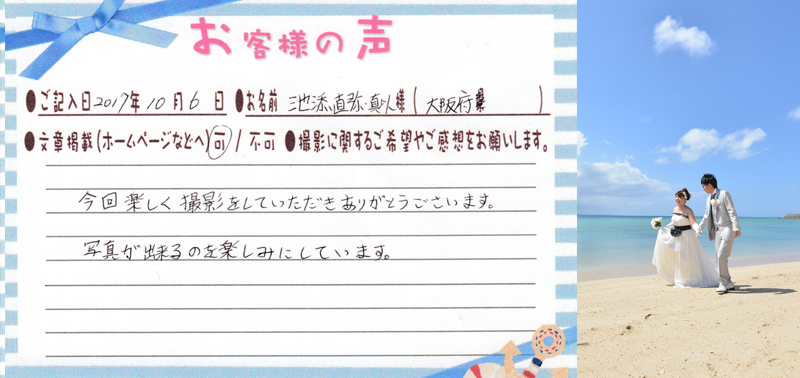 お客様の声
●ご記入日2017年10月6日 ●お名前 池添直弥・真以様(大阪府県)
●文章掲載(ホームページなどへ)可/不可 ●撮影に関するご希望やご感想をお願いします。
今回楽しく撮影をしていただきありがとうございます。
写真が出来るのを楽しみにしています。